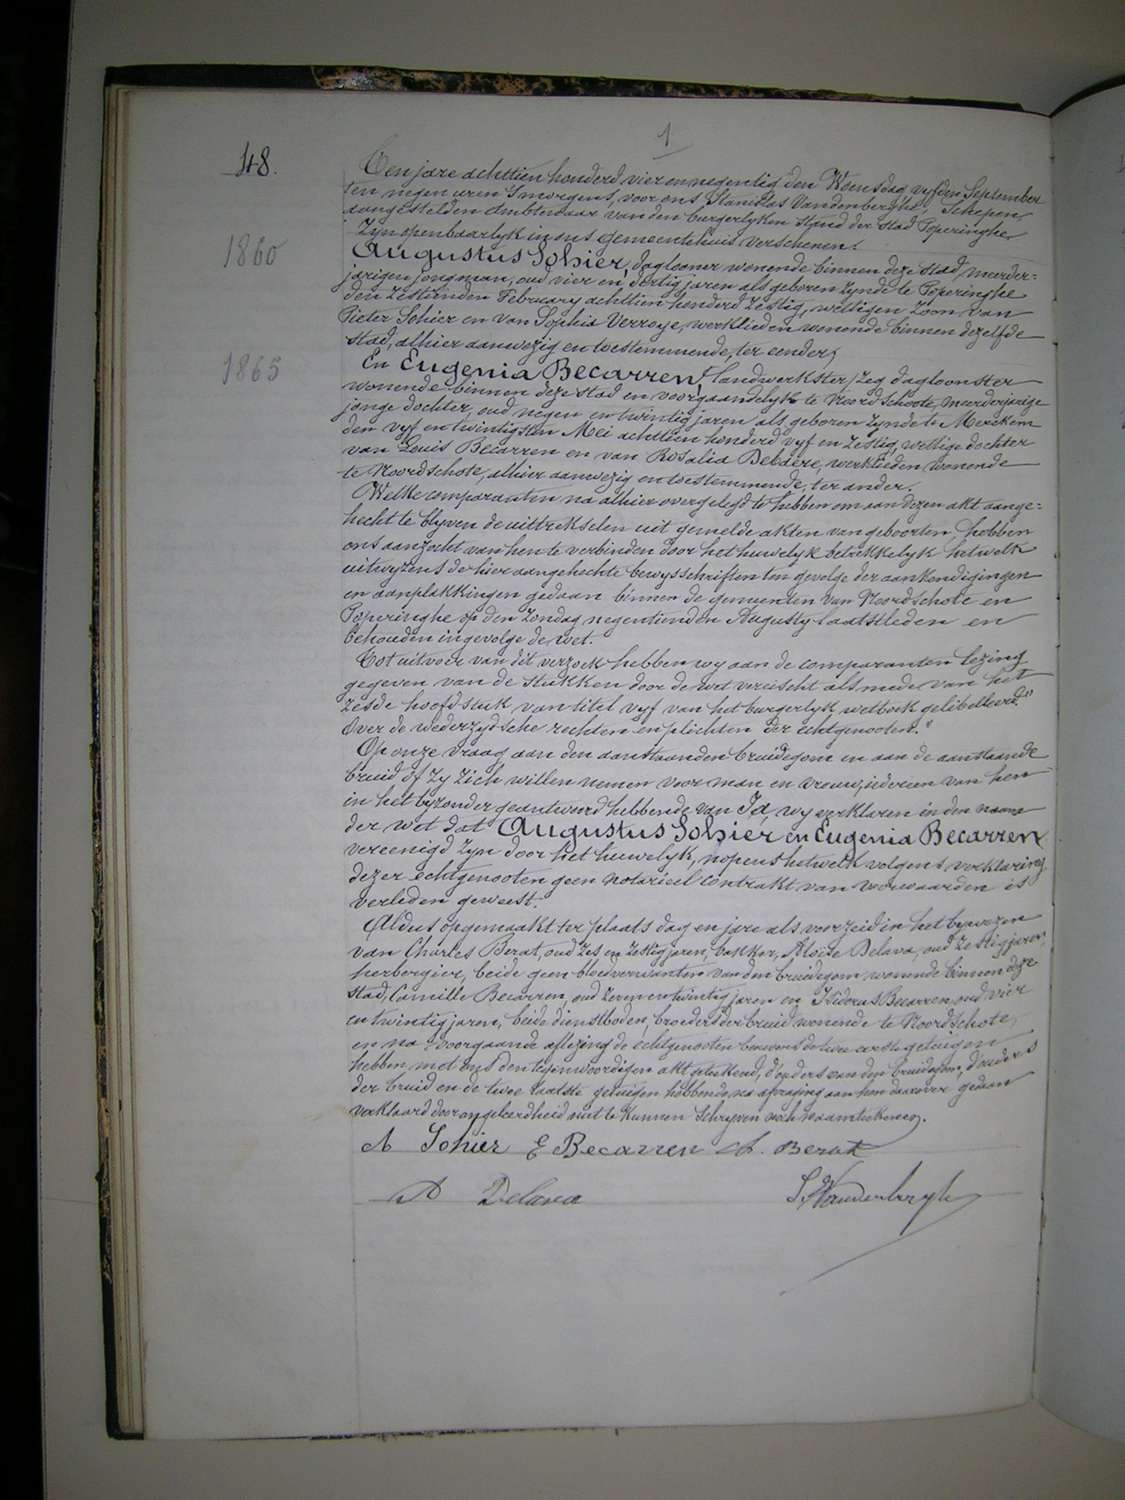 1
48.
Ten jare achttien honderd vier en negentig den Woensdag vyfden September
ten negen uren 's morgens, voor ons Stanislas Vandenberghe, Schepen
aangestelden Ambtenaar van den burgerlyken stand der stad Poperinghe
Zyn openbaarlyk in ons gemeentehuis verschenen.
1860
Augustus Sohier, daglooner wonende binnen deze stad, meerder=
jarigen jongman, oud vier en dertig jaren als geboren zynde te Poperinghe
den zestienden February achttien honderd zestig, wettigen zoon van
Pieter Sohier en van Sophia Verroye, werklieden wonende binnen dezelfde
stad, alhier aanwezig en toestemmende, ter eender;
1865
En Eugenia Becarren, landwerkster, zeg dagloonster
wonende binnen deze stad en voorgaandelyk te Noordschoote, meerderjarige
jonge dochter, oud negen en twintig jaren als geboren zynde te Merckem
den vyf en twintigsten Mei achttien honderd vyf en zestig, wettige dochter
van Louis Becarren en van Rosalia Debaere, werklieden wonende
te Noordschote, alhier aanwezig en toestemmende, ter ander.
Welke comparanten na alhier overgelegd te hebben om aan dezen akt aange=
hecht te blyven de uittrekselen uit gemelde akten van geboorten, hebben
ons aanzocht van hen te verbinden door het huwelyk betrekkelyk hetwelk
uitwyzens de hier aangehechte bewysschriften ten gevolge der aankondigingen
en aanplakkingen gedaan binnen de gemeenten van Noordschote en
Poperinghe op den Zondag negentienden Augusty laatstleden en
behouden ingevolge de wet.
Tot uitvoer van dit verzoek hebben wy aan de comparanten lezing
gegeven van de stukken door de wet vereischt als mede van het
zesde hoofdstuk van titel vyf van het burgerlyk wetboek gelibelleerd:"
Over de wederzydsche rechten en plichten der echtgenooten."
Op onze vraag aan den aanstaanden bruidegom en aan de aanstaande
bruid of zy zich willen nemen voor man en vrouw, iedereen van hen
in het byzonder geantwoord hebbende van Ja, wy verklaren in den naam
der wet dat Augustus Sohier en Eugenia Becarren
vereenigd zyn door het huwelyk, nopens hetwelk volgens verklaring
dezer echtgenooten geen notarieel contrakt van voorwaarden is
verleden geweest.
Aldus opgemaakt ter plaats dag en jare als voorzeid in het bywezen
van Charles Berat, oud zes en zestig jaren, bakker, Aloïse Delava, oud zestig jaren,
herbergier, beide geen bloedverwanten van den bruidegom wonende binnen deze
stad, Camille Becarren, oud zeven en twintig jaren en Isidorus Becarren, oud vier
en twintig jaren, beide dienstboden, broeders der bruid wonende te Noordschote,
en na voorgaande aflezing de echtgenooten benevens de twee eerste getuigen
hebben met ons den tegenwoordigen akt geteekend, d'ouders van den bruidegom, d'ouders
der bruid en de twee laatste getuigen hebbende na afvraging aan hen daarover gedaan
verklaard door ongeleerdheid niet te kunnen schryven noch naamteekenen.
A Sohier E Becarren Ch. Berat
A Delava S. Vandenberghe